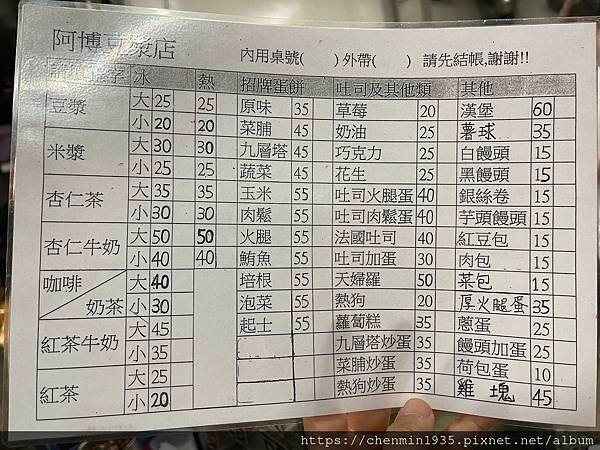 阿博豆漿店
內用桌號(　　)外帶(　　) 請先結帳,謝謝!!
冰 熱 招牌蛋餅 吐司及其他類 其他
豆漿 大 25 25 原味 35 草莓 20 漢堡 60
小 20 20 菜脯 45 奶油 25 薯球 35
米漿 大 30 30 九層塔 45 巧克力 25 白饅頭 15
小 25 25 蔬菜 45 花生 25 黑饅頭 15
杏仁茶 大 35 35 玉米 55 吐司火腿蛋 40 銀絲卷 15
小 30 30 肉鬆 55 吐司肉鬆蛋 40 芋頭饅頭 15
杏仁牛奶 大 50 50 火腿 55 法國吐司 40 紅豆包 15
小 40 40 鮪魚 55 吐司加蛋 30 肉包 15
咖啡 大 40 培根 55 天婦羅 50 菜包 15
奶茶 小 30 泡菜 55 熱狗 20 厚火腿蛋 35
紅茶牛奶 大 45 起士 55 蘿蔔糕 35 蔥蛋 25
小 35 九層塔炒蛋 35 饅頭加蛋 25
紅茶 大 25 菜脯炒蛋 35 荷包蛋 10
小 20 熱狗炒蛋 35 雞塊 45
https://chenmin1935.pixnet.net/album